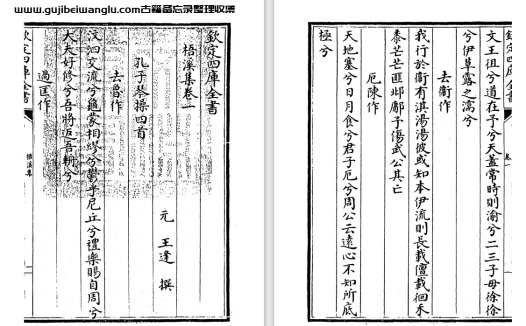 www.gujibeiwanglu.com古籍备忘录整理收集
欽定四庫全書
梧溪集卷一
元 王逢 撰
孔子琴操四首
去魯作
汶泗交流兮龜蒙相繆兮鬱乎尼丘兮禮樂賜自周兮
大夫好修兮吾將返吾輈兮
過匡作
欽定四庫全書
梧溪集
文王祖兮道在予兮天蓋常時則渝兮二三子毋徐徐
兮伊草露之濡兮
去衛作
我行於衛有淇湯湯彼或知本伊流則長載邅載徊禾
黍芒芒匪邶鄘予傷武公其亡
厄陳作
天地塞兮日月食兮君子厄兮周公云遠心不知所底
極兮
欽定四庫全書
卷一